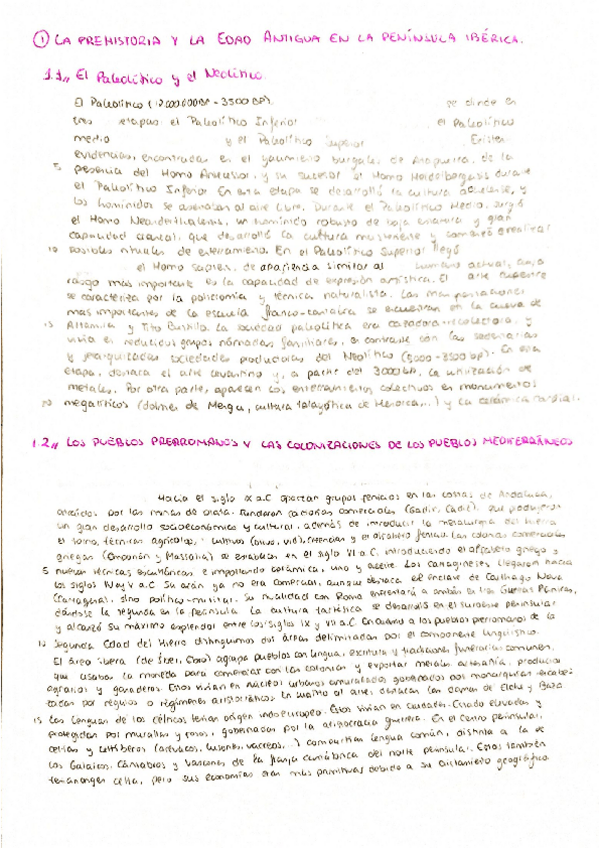 ① LA PREHISTORIA Y LA EDAD ANTIGUA EN LA PENÍNSULA IBÉRICA.
1.1,, El Paleolítico y el Neolítico.
El Paleolítico ( BP - 3500 BP) se divide en
tres etapas: el Paleolítico Inferior el Paleolítico
medio y el Paleolítico Superior Existen
evidencias, encontradas en el yacimiento burgalés de Atapuerca, de la
5 presencia del Homo Antecessor, y su sucesor el Homo Heidelbergensis durante
el Paleolítico Inferior. En esta etapa se desarrolló la cultura achelense, y
los homínidos se asentaban al aire libre. Durante el Paleolítico Medio, surgió
el Homo Neanderthalensis, un homínido robusto de baja estatura y gran
capacidad craneal, que desarrolló la cultura musteriense y comenzó a realizar
10 posibles rituales de enterramiento. En el Paleolítico Superior llegó
el Homo Sapiens, de apariencia similar al humano actual, cuyo
rasgo más importante es la capacidad de expresión artística. El arte rupestre
se caracteriza por la policromía y técnica naturalista. Las manifestaciones
más importantes de la escuela franco-cantábra se encuentran en la cueva de
15 Altamira y Tito Bustillo. La sociedad paleolítica era cazadora-recolectora, y
vivía en reducidos grupos nómadas familiares, a contraste con las sedentarias
y jerarquizadas sociedades productoras del Neolítico (5000 - 3500 BP). En esa
etapa, destaca el arte levantino y, a partir del 3000 BP, la utilización de
metales. Por otra parte, aparecen los enterramientos colectivos en monumentos
20 megalíticos (dolmen de Menga, cultura talayótica de Menorca,...) y la cerámica cardial.
1.2,, LOS PUEBLOS PRERROMANOS Y LAS COLONIZACIONES DE LOS PUEBLOS MEDITERRÁNEOS
Hacia el siglo IX a.C aparecen grupos fenicios en las costas de Andalucía,
atraídos por las minas de plata. Fundaron factorías comerciales (Gadir, Cádiz), que produjeron
un gran desarrollo socioeconómico y cultural, además de introducir la metalurgia del hierro
el torno, técnicas agrícolas, cultivos (olivo, vid), creencias y el alfabeto fenicio. Las colonias comerciales
griegas (Emporion y Massalia) se establecen en el siglo VI a.C, introduciendo el alfabeto griego y
5 nuevas técnicas escultóricas e importando cerámica, vino y aceite. Los cartagineses llegaron hacia
los siglos IV y V a.C. Su afán ya no era comercial, aunque destaca el enclave de Carthago Nova
(Cartagena), sino político-militar. Su rivalidad con Roma enfrentará a ambos en las Guerras Púnicas,
dándose la segunda en la península. La cultura tartésica se desarrolló en el suroeste peninsular
y alcanzó su máximo esplendor entre los siglos IX y VII a.C. En cuanto a los pueblos prerromanos de la
10 Segunda Edad del Hierro distinguimos dos áreas delimitadas por el componente lingüístico.
El área íbera (de Íber, Ebro) agrupa pueblos con lengua, escritura y tradiciones funerarias comunes,
que usaban la moneda para comerciar con las colonias y exportar metales, artesanía, productos
agrarios y ganaderos. Estos vivían en núcleos urbanos amuralladas gobernados por monarquías encabe-
zadas por régulos o regímenes aristocráticos. En cuanto al arte, destacan las damas de Elche y Baza.
15 Las lenguas de los célticos tenían origen indoeuropeo. Estos vivían en ciudades-Estado elevadas y
protegidas por murallas y fosos, gobernadas por la aristocracia guerrera. En el centro peninsular,
celtas y celtíberos (arévacos, lusones, vacceos,...) compartían lengua común, distinta a la de
los Galaicos, Cántabros y Vascones de la franja cantábrica del norte peninsular. Estos también
tenían origen celta, pero sus economías eran más primitivas debido a su aislamiento geográfico.